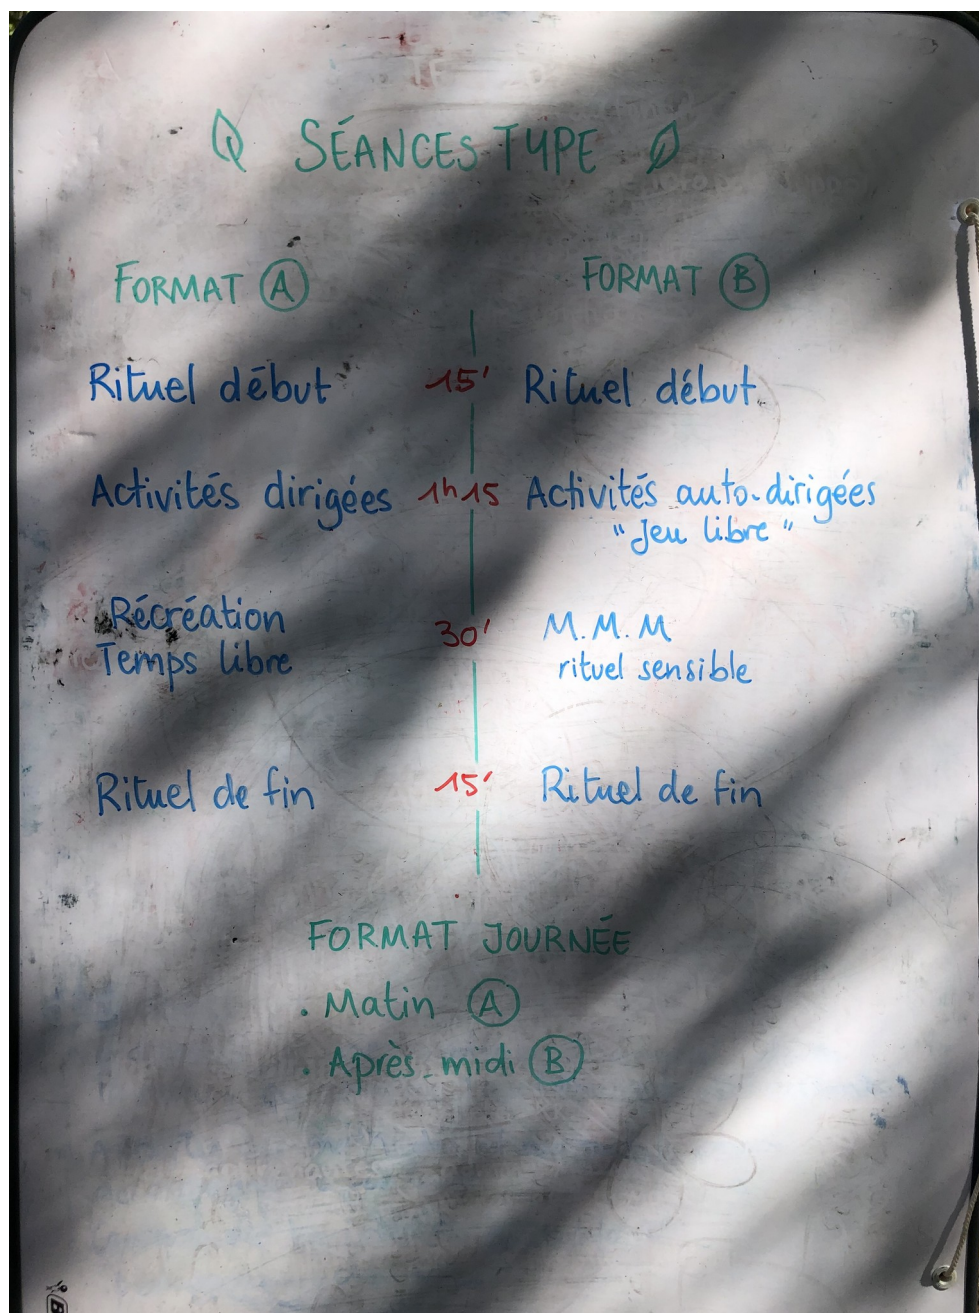 SÉANCES TYPE
FORMAT A FORMAT B
Rituel début 15' Rituel début
Activités dirigées 1h15 Activités auto-dirigées
"Jeu libre"
Récréation 30' M.M.M
Temps libre rituel sensible
Rituel de fin 15' Rituel de fin
FORMAT JOURNÉE
. Matin A
. Après-midi B